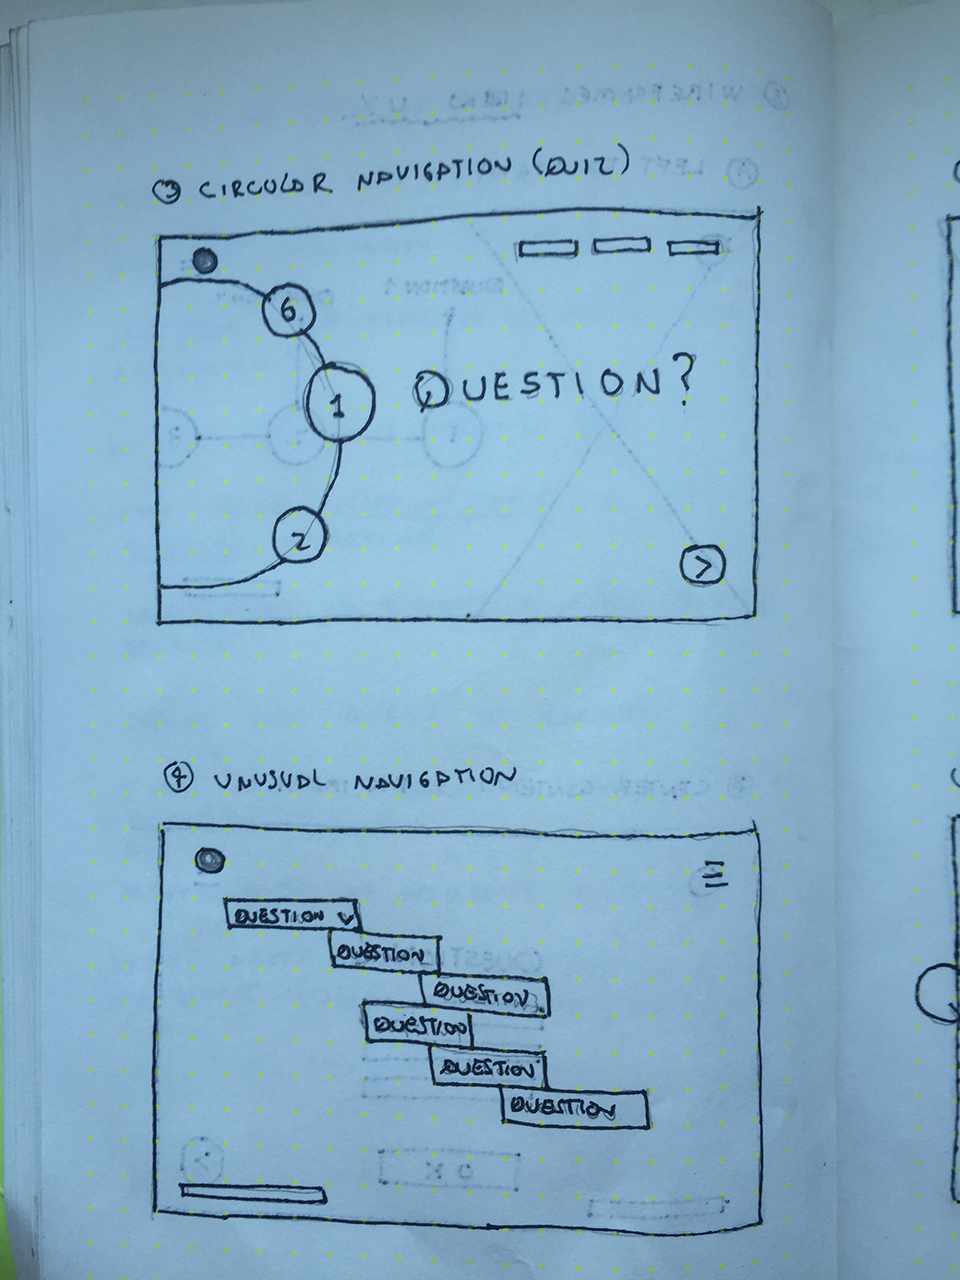 3 CIRCULAR NAVIGATION (QUIZ)
6
1
QUESTION?
2
>
4 UNUSUAL NAVIGATION
QUESTION
QUESTION
QUESTION
QUESTION
QUESTION
QUESTION